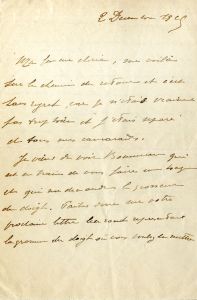 2 Décembre 19
me voilà
sur le chemin de retour et c'est
sans regret, car je n'étais vraiment
pas très bien et j'étais séparé
de tous mes camarades.
Je viens de voir Bonnier qui
est en train de vous faire une bague
et qui me demande la grosseur
du doigt. Faites donc sur votre
prochaine lettre un rond représentant
la grosseur du doigt où vous voulez la mettre